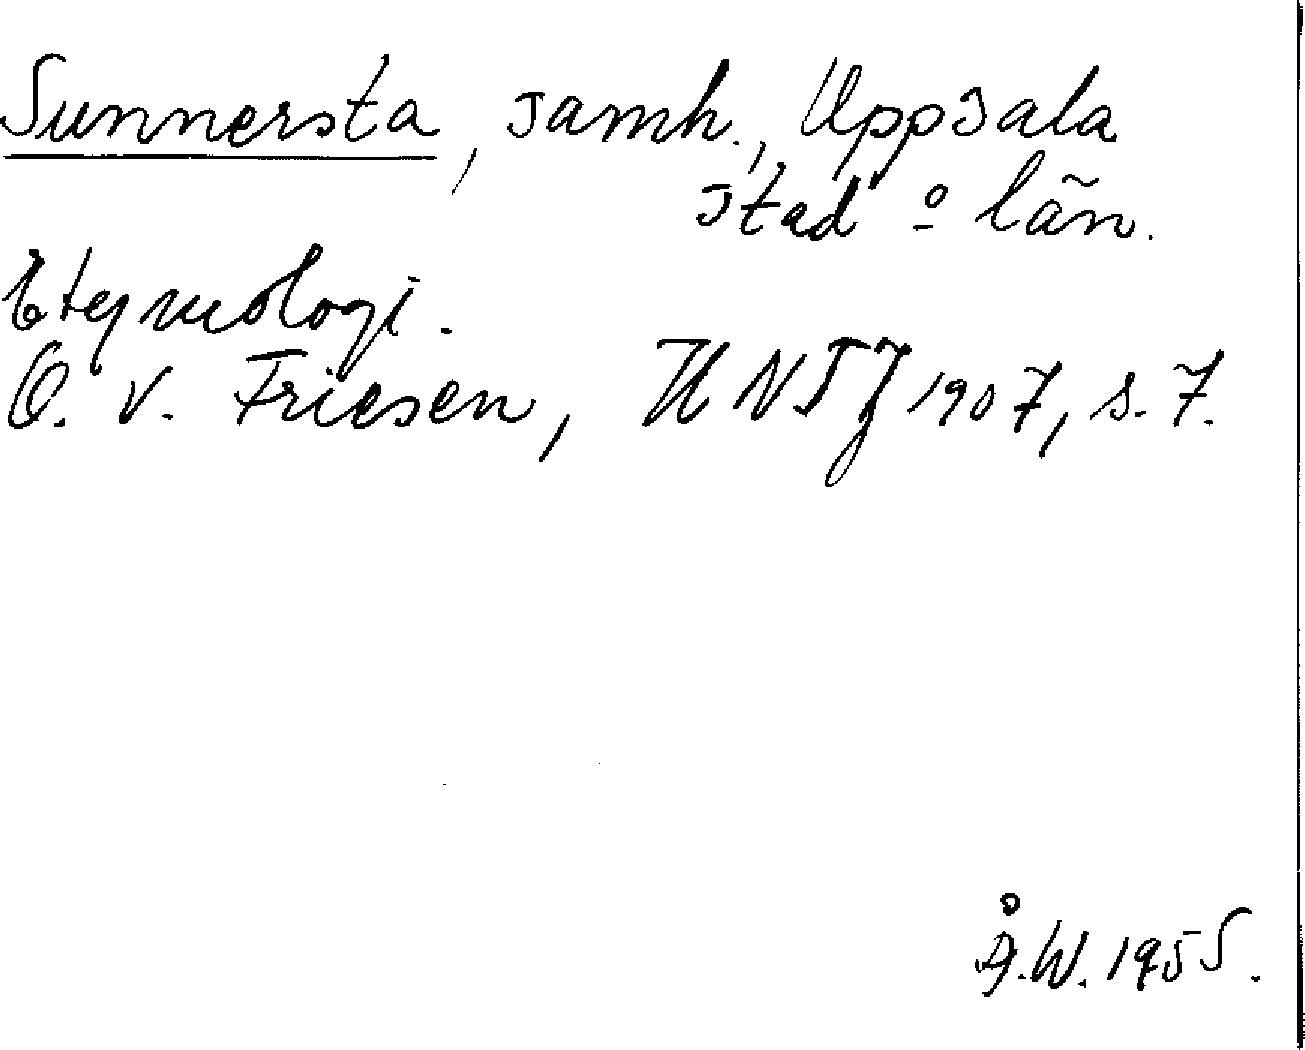 Sunnersta, samh., Uppsala
stad o län.
Etymologi.
O. v. Friesen, UNT J 1907, s. 7.
Å.W. 1955.